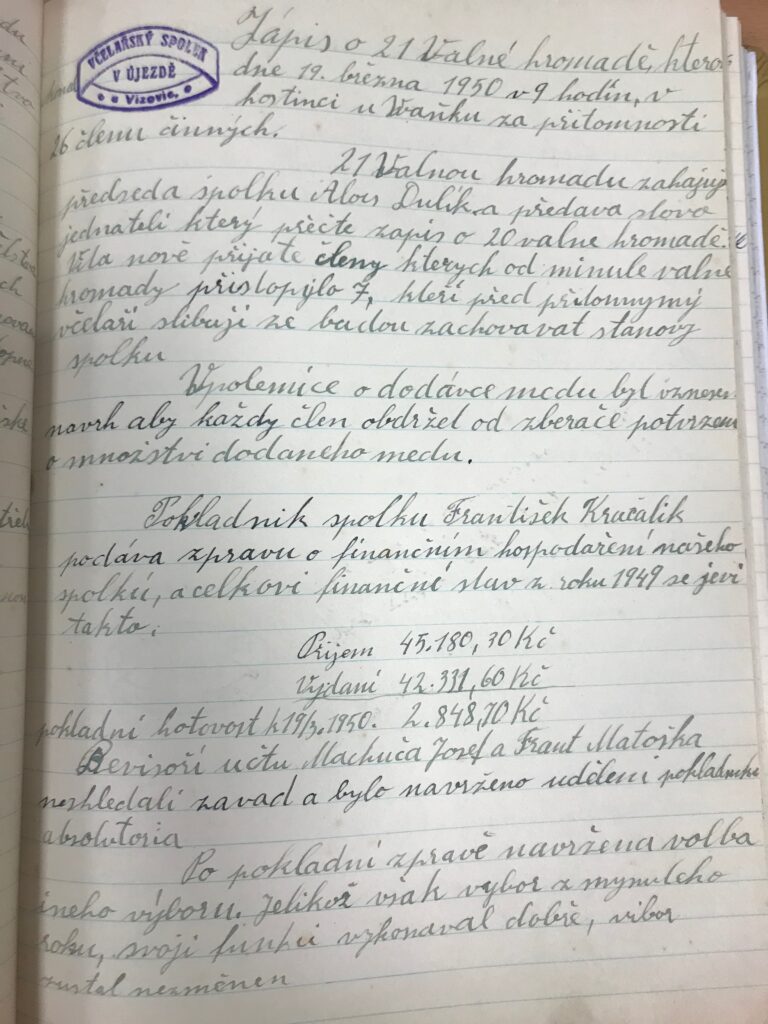 VČELAŘSKÝ SPOLEK
V ÚJEZDĚ
Vizovic
Zápis o 21 Valné hromadě, kterou
dne 19. března 1950 v 9 hodín, v
hostinci u Vaňku za přitomnosti
26 členu činných.
21 Valnou hromadu zahajuje
předseda spolku Alois Dulík a předava slovo
jednateli který přečte zapis o 20 valne hromadě.
Víta nově přijate členy kterych od minule valne
hromady přistopýlo 7, kteří před přítomnymý
včelaří slibují ze budou zachovavat stanovy
spolku
Vpolemice o dodávce medu byl vznesen
navrh aby každy člen obdržel od zberače potvrzeni
o množstvi dodaneho medu.
Pokladnik spolku František Kračalik
podáva zpravu o finančním hospodaření našeho
spolkú, a celkovi finančné stav z roku 1949 se jevi
takto.
Přijem 45.180,30 Kč
Vydaní 42.331,60 Kč
pokladní hotovost k 19/3. 1950. 2.848,70 Kč
Revisoří učtu Machuča Josef a Frant Matoška
neshledali zavad a bylo navrženo uděleni pokladniku
absolutoria
Po pokladní zpravě navržena volba
ineho výboru. Jelikož však vybor z mynuleho
roku, svoji funkci vykonaval dobře, vibor
zustal nezměnen